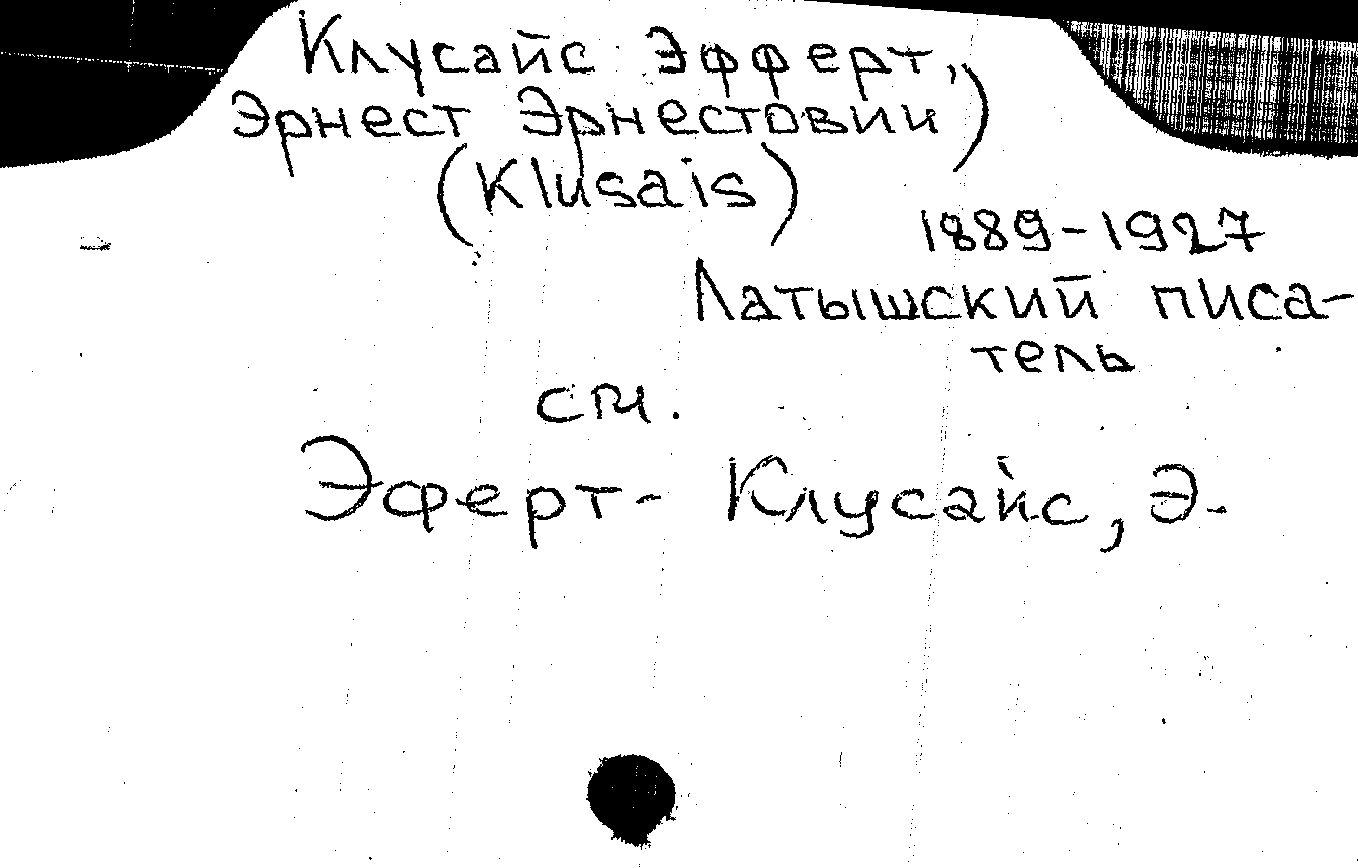 Клусайс Эфферт,
Эрнест Эрнестович)
(Klusais)
1889-1927
Латышский писа-
тель
см.
Эферт- Клусайс, Э.